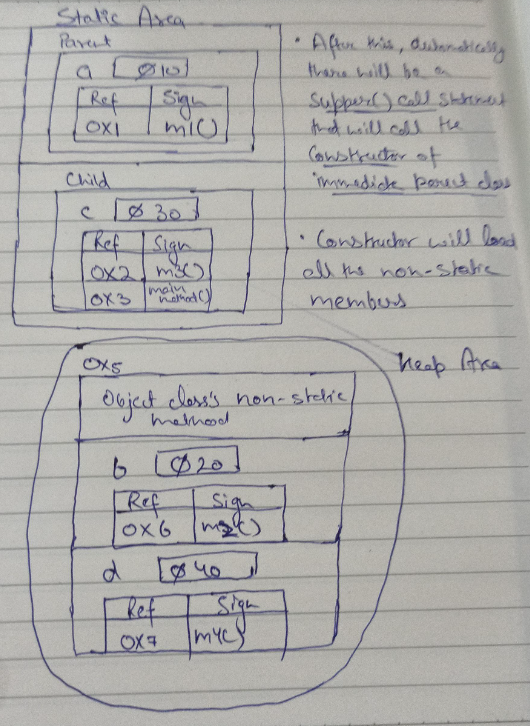 Static Area
Parent
a 0 10
Ref Sign
0X1 m1()
Child
c 0 30
Ref Sign
0X2 m3()
0X3 main method()
• After this, automatically
there will be a
supper() call statement
that will call the
constructor of
immediate parent class
• Constructor will load
all the non-static
members
Heap Area
0X5
Object class's non-static
method
b 0 20
Ref Sign
0X6 m2()
d 0 40
Ref Sign
0X7 m4()